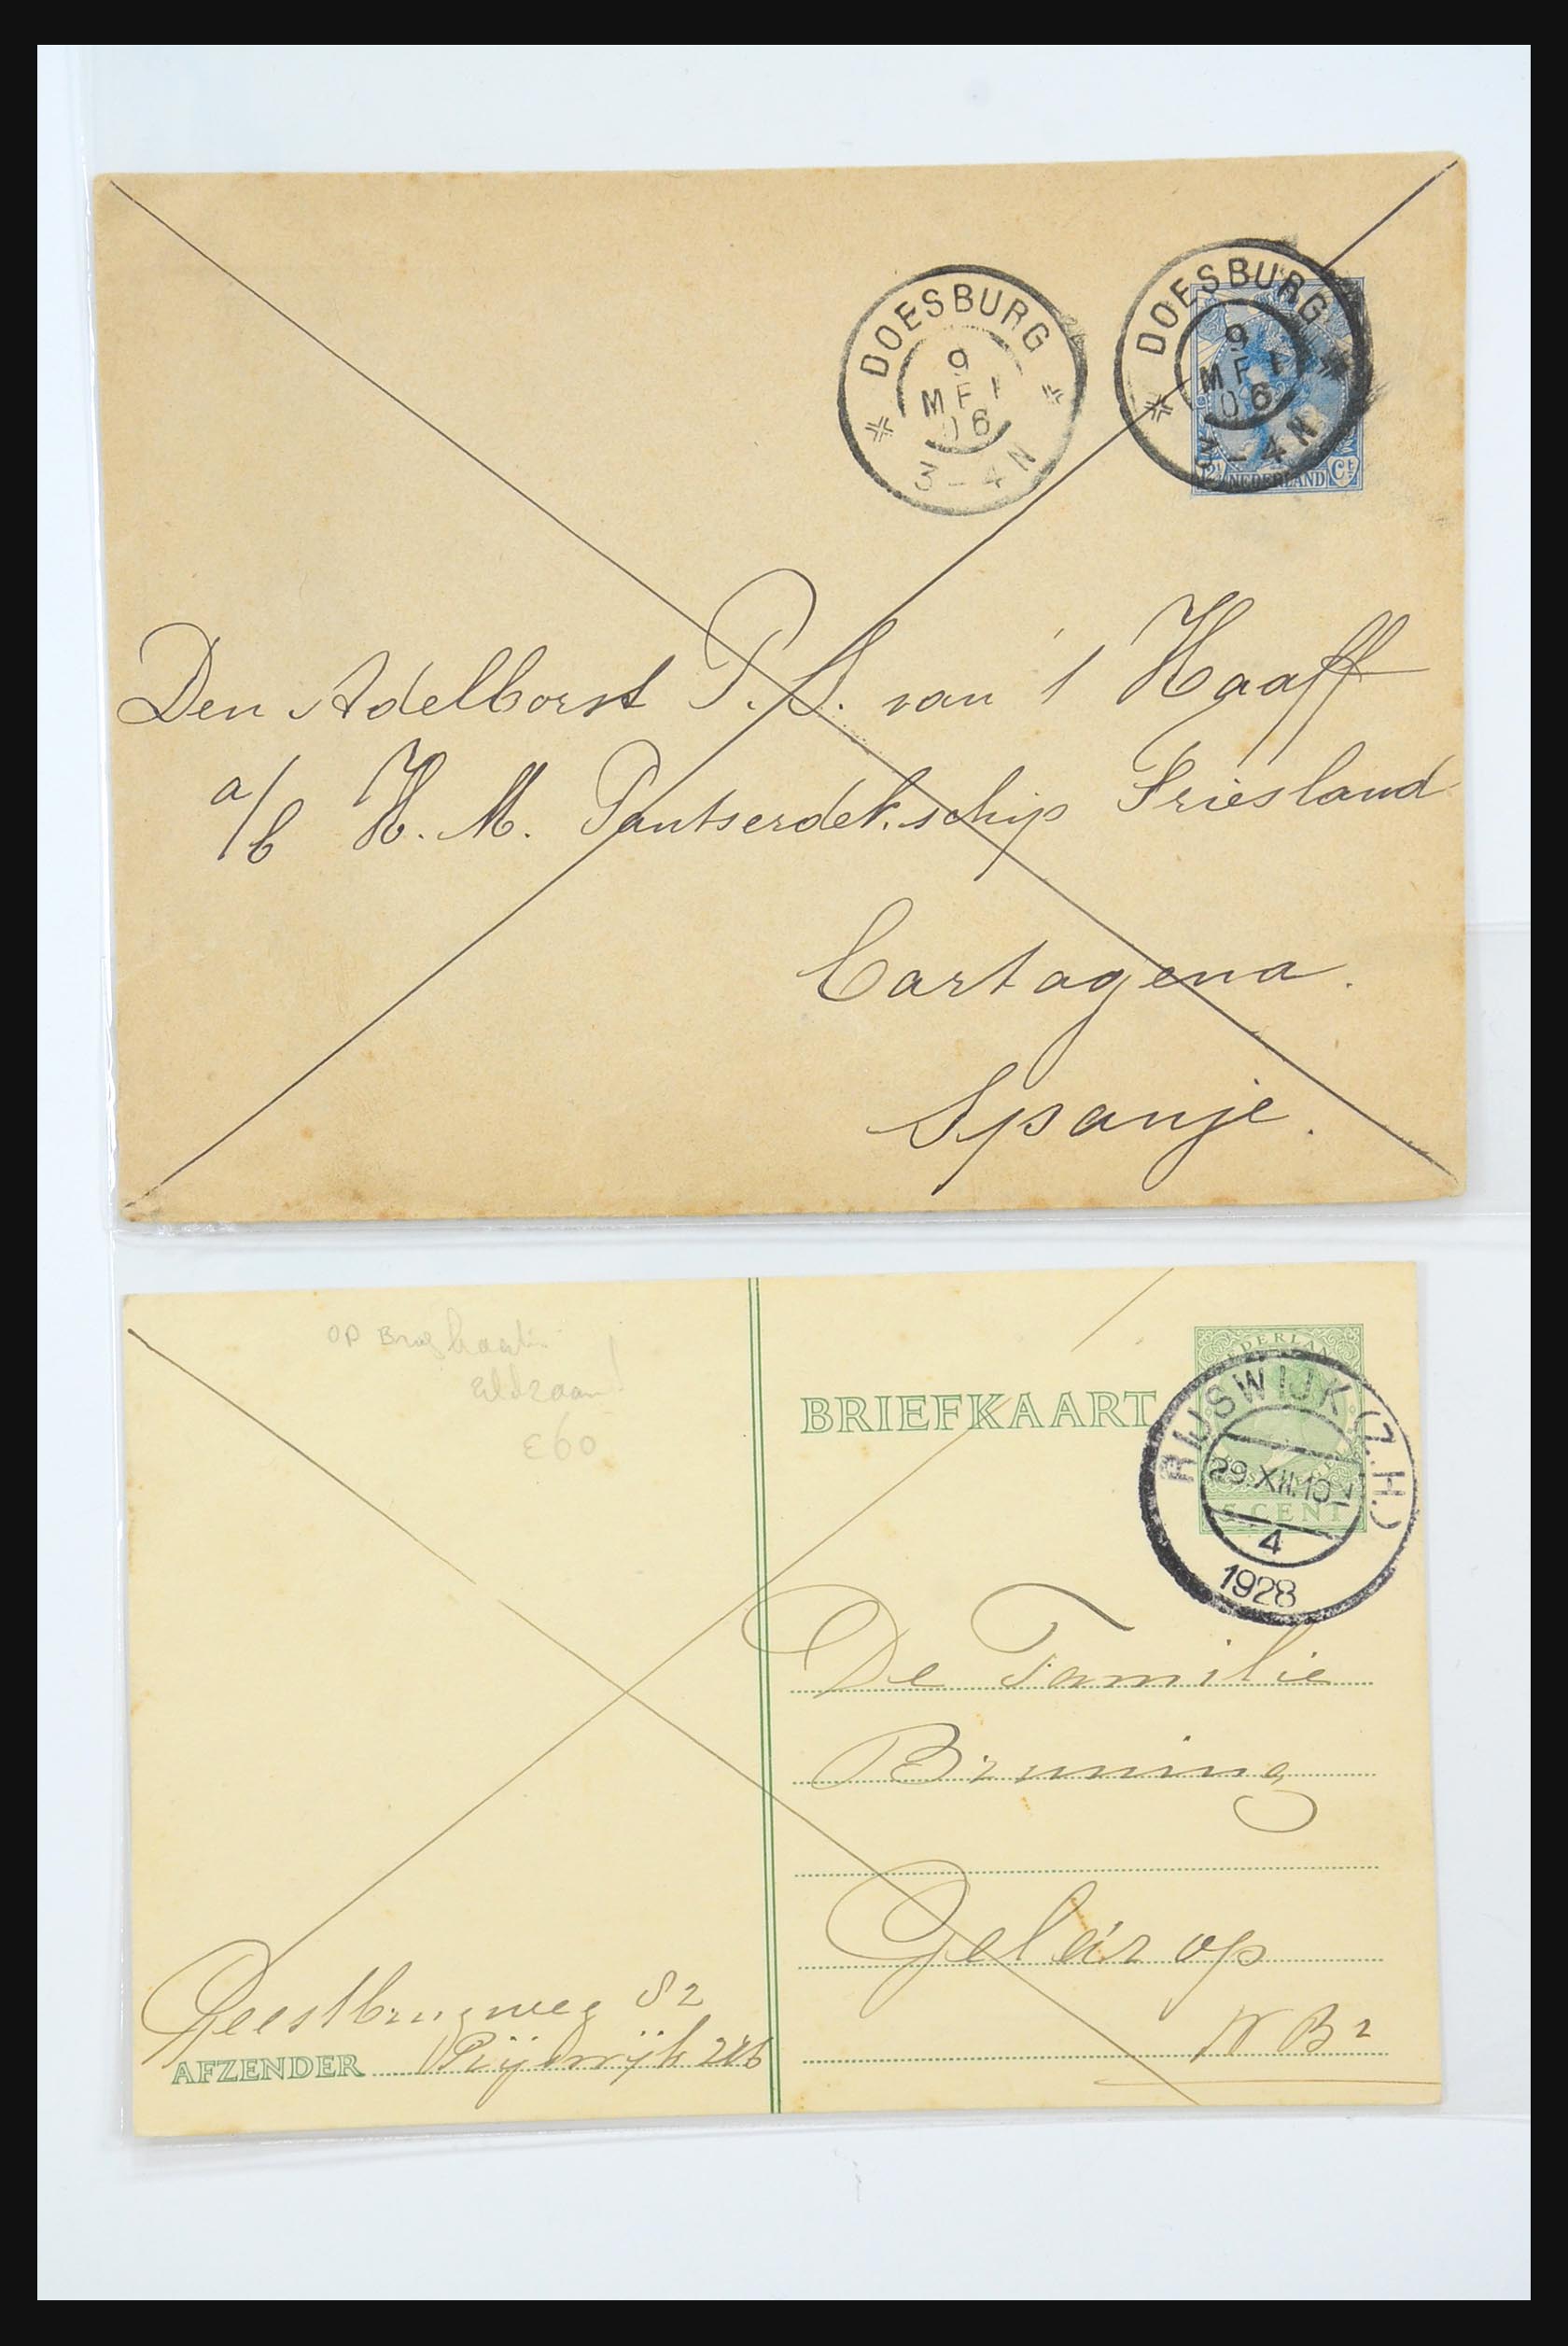 DOESBURG
9
MEI
06
3-4N
DOESBURG
9
MEI
06
3-4N
12½ NEDERLAND Ct
Den Adelborst P. S. van 't Haaff
a/b H. M. Pantserdek.schip Friesland
Cartagena.
Spanje.
OP
€60
BRIEFKAART
NEDERLAND
5 CENT
RIJSWIJK (Z.H.)
29.XII.10-
4
1928
De Familie
Bruning
Geldrop
N B
82
AFZENDER Rijswijk